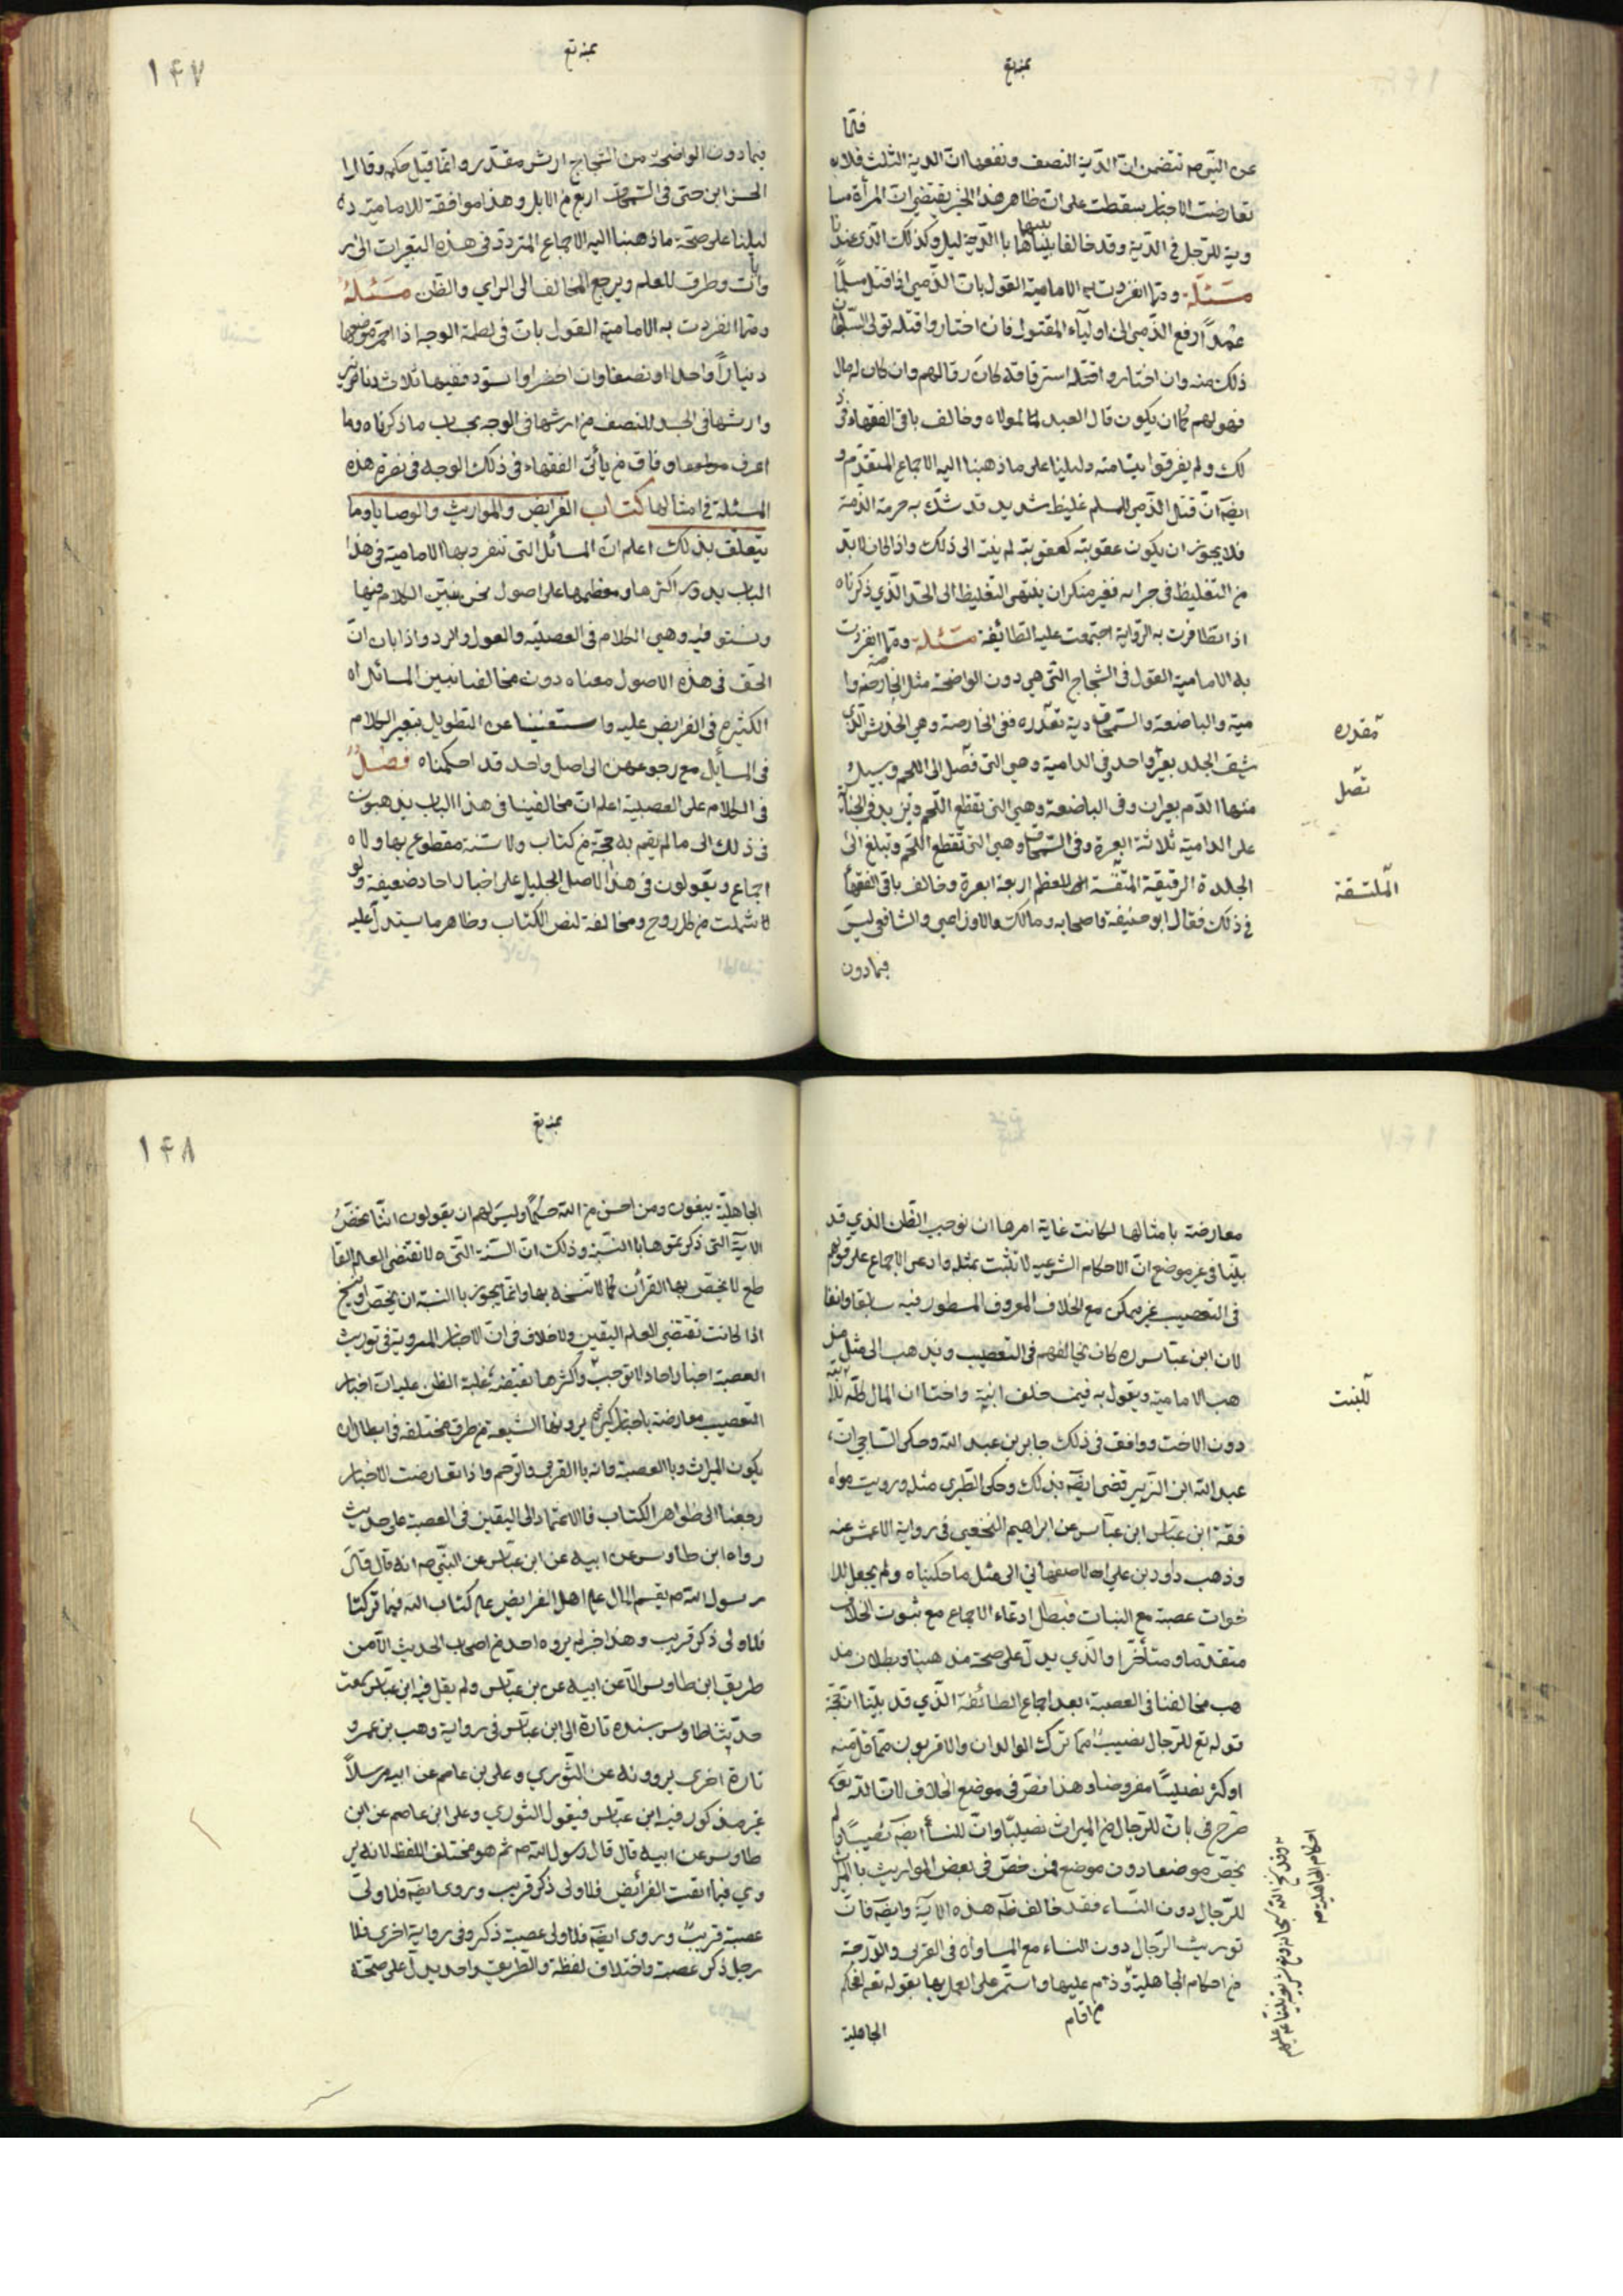 فلمّا
عن النّبي ص تتضمن انّ الدّية النصف ونفعها انّ الدية الثلث فلاه
تعارضت الاخبار سقطت على ان ظاهر هذا الخبر يقتضي ان المرأة مسا
وية للرّجل في الدّية وقد خالفنا بينهما با الدّ ليل وكذلك الذي عندنا
مسئلة وممّا انفردت به الامامية القول بان الذّمي اذا قتل مسلمًا
عمدًا دفع الذّمي الى اوليآء المقتول فان اختاروا قتله تولى السّلطان
ذلك منه وان اختاروا استرقاقه كان رقا لهم وان كان له مال
فهو لهم كما ان يكون مال العبد لمولاه وخالف باقي الفقهاء في ذ
لك ولم يفرقوا بيننا منه دليلنا على ما ذهبنا اليه الاجماع المتقدّم و
ايضا انّ قتل الذّمي للمسلم غليظ شديد قد هتك به حرمة الذمة
فلا يجوز ان يكون عقوبته كعقوبة لم ينته الى ذلك واذا كان لا بدّ
من التغليظ في جزاه فغير منكر ان ينتهى التغليظ الى الحدّ الّذي ذكرناه
اذا تظافرت به الرّواية اجتمعت عليه الطّائفة مسئلة وممّا انفردت
به الامامية القول في الشجاج التّي هي دون الواضحة مثل الخارصة والدا
مية والباضعة والسّمحاق دية مقدره ففي الخارصة وهي الخدش الّذي
يشق الجلد بعير واحد وفي الدامية وهي التي تصل الى اللحم ويسيل
منها الدّم بعيران وفي الباضعة وهي التي تقطع اللّحم وتزيد في الجناية
على الدامية ثلاثة ابعرة وفي السّمحاق وهي التي تقطع اللحم وتبلغ الى
الجلدة الرقيقة الملتسقة الى العظم اربعة ابعرة وخالف باقي الفقهآ
في ذلك فقال ابو حنيفة واصحابه ومالك والاوزاعي والشافعي ليس
فيما دون
مقدره
تصل
الملتسقة
١٤٧
فيما دون الواضحة من الشجاج ارش مقدّر وانّما فيه حكمه وقال ا
الحسن ابن حي في السّمحاق اربع من الابل وهذا موافقة للامامية ده
ليلنا على صحّة ما ذهبنا اليه الاجماع المتردّد في هذه البعيرات الى بر
وآت وطرق للعلم ويرجع المخالف الى الراي والظن مسئلة
وممّا انفردت به الامامية القول بان في لطمة الوجه اذا احمر موضعها
دينارًا واحدا ونصفا وان اخضر او اسود ففيها ثلاث دنانير
وارشها في الجسد النصف من ارشها في الوجه بحساب ما ذكرناه وما
اعرف موافقا وفاق من باقي الفقهاء في ذلك الوجه في نصرة هذه
المسئلة في امثالها كتاب الفرايض والمواريث والوصايا وما
يتعلّق بذلك اعلم ان المسائل التي تنفرد بها الامامية في هذا
الباب يدور اكثرها ومعظمها على اصول نحن نبيّن الكلام فيها
ونستوفيه وهي الكلام في العصبة والعول والرد واذا بان انّ
الحق في هذه الاصول معناه دون مخالفنا نبين المسائل اه
الكثيرة في الفرايض عليه واستغنينا عن التطويل بتعيّر الكلام
في المسائل مع رجوعهن الى اصل واحد قد احكمناه فصلٌ
في الكلام على العصبة اعلم ان مخالفينا في هذا الباب يذهبون
في ذلك الى ما لم يقم به حجّة من كتاب ولا سنّة مقطوع بها ولا ه
اجماع ويقولون في هذا الاصل الجليل على اخبار احاد ضعيفة ولو
سلمت من كل روح ومخالفة لنص الكتاب وظاهر ما يستدلّ عليه
معارضة بامثالها لكانت غاية امرها ان توجب الظن الذي قد
بيّنا في غير موضع انّ الاحكام الشرعيه لا تثبت بمثله وادعى الاجماع على قولهم
في التعصيب غير ممكن مع الخلاف المعروف المسطور فيه سابقا وانفا
لان ابن عبّاس ره كان يخالفهم في التعصيب ويذهب الى مثل مذ
هب الامامية ويقول به فيمن خلف ابنة واختا ان المال كلّه للابنة
دون الاخت ووافقه في ذلك جابر بن عبد الله وحكى الساجي انّ
عبد الله ابن الزّبير قضى ايضًا بذلك وحكى الطّبري مثله ورويت مواه
فقة ابن عبّاس ابن عبّاس عن ابراهيم النّخعي في رواية الاعمش عنه
وذهب داود بن علي الاصفهاني الى مثل ما حكيناه ولم يجعل للا
خوات عصبة مع البنات فبطل ادعاء الاجماع مع ثبوت الخلاف
متقدمّا ومتأخّرا والّذي يدلّ على صحة مذهبنا وبطلان مذ
هب مخالفنا في العصبة بعد اجماع الطّائفة الذّي قد بيّنا انّه حجّة
قوله تع للرّجال نصيبٌ ممّا ترك الوالدان والاقربون ممّا قلّ منه
او كثر نصيبًا مفروضا وهذا نصّ في موضع الخلاف لانّ الله تع
صرّح في بانّ للرّجال من الميراث نصيبًا وانّ للنّسآ ايضًا نصيبًا ولم
يخصّ موضعا دون موضع فمن خصّ في بعض المواريث بالميراث
للرّجال دون النّساء فقد خالف ظاهر هذه الاية وايضًا فانّ
توريث الرّجال دون النساء مع المساواه في القربى والدّرجة
من احكام الجاهلية وذم من اقام عليها واستمّر على العمل بها بقوله تع افحكم
الجاهلية
للبنت
وقد نسخ الله سبحانه بشريعة نبيّنا عليهم
احكام الجاهلية ص
١٤٨
الجاهليّة يبغون ومن احسن من الله حكمًا وليس لهم ان يقولون انّنا نخصّ
الايّة التي ذكرتموها بالسّنّة وذلك انّ السّنة التّى ه لا تقتضى العلم القا
طع لا يخصّ بها القرآن كما لا تنسخه بها وانّما يجوز با السّنة ان يخصّ او ينسخ
اذا كانت تقتضي العلم اليقين ولا خلاف في انّ الاخبار المروية في توريث
العصبة اخبار احاد لا توجب واكثرها تقتضه غلبة الظن على ان اخبار
التعصيب معارضة باخبار كثيرة يرونها الشيعة من طرق مختلفة في ابطال ان
يكون الميراث وبا العصبة وانه با القربى والرّحم واذا تعارضت الاخبار
رجعنا الى ظواهر الكتاب فالاعتماد الى اليقين في العصبة على حديث
رواه ابن طاوس عن ابيه عن ابن عبّاس عن النّبي ص انه قال قال
رسول الله ص يقسم المال على اهل الفرايض على كتاب الله فما تركتا
فلاولى ذكر قريب وهذا خبر لم يروه احد من اصحاب الحديث الّا من
طريق ابن طاوس الّا عن ابيه عن بن عبّاس ولم يقل فيه ابن عبّاس سمعت
حدّيثا طاوس بسنده تارة الى ابن عبّاس في رواية وهب بن عمرو
تارة اخرى يروونه عن الثّوري وعلى بن عاصم عن ابيه مرسلًا
غير مذكور فيه ابن عبّاس فيقول الثوري وعلى ابن عاصم عن ابن
طاوس عن ابيه قال قال رسول الله ص ثم هو مختلف اللفظ لانه ير
وي فما ابقت الفرائيض فلاولى ذكر قريب وروى ايضًا فلاولى
عصبة قريبٌ وروى ايضًا فلاولى عصبة ذكر وفي رواية اخرى فلا
رجل ذكر عصبة واختلاف لفظة والطّريق واحد يدلّ على صحّة